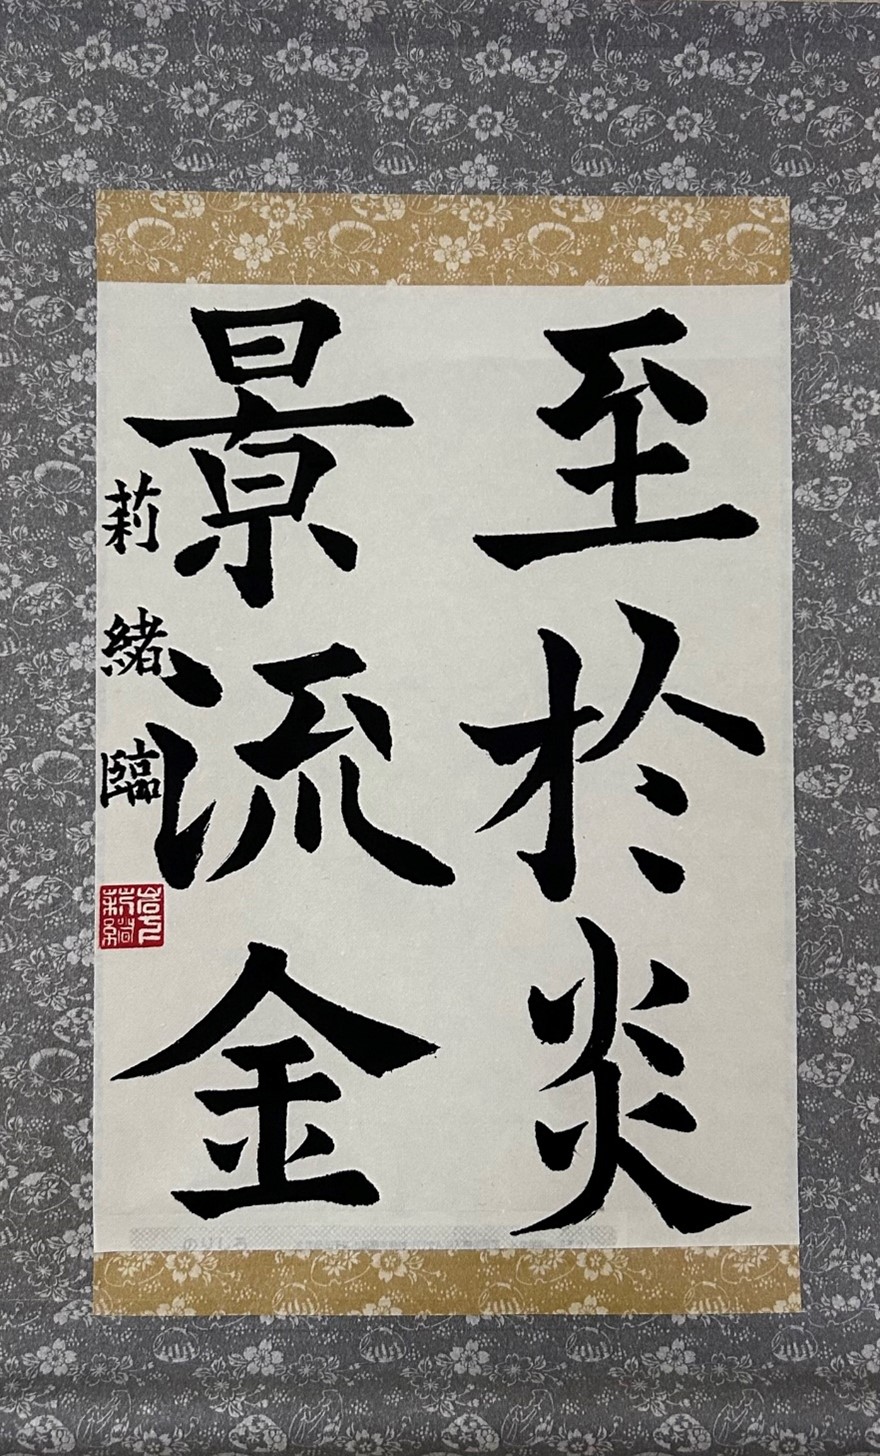 至於炎
景流金
莉緒臨